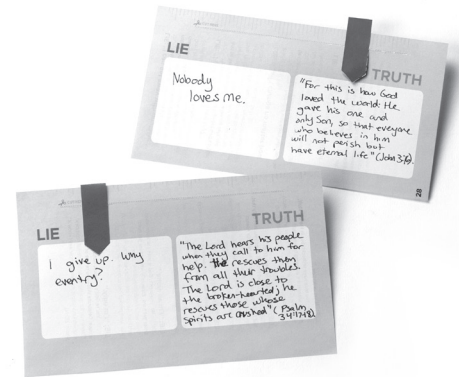 LIE
TRUTH
Nobody
loves me.
"For this is how God
loved the world: He
gave his one and
only Son, so that everyone
who believes in him
will not perish but
have eternal life" (John 3:16).
28
LIE
TRUTH
I give up. Why
even try?
"The Lord hears his people
when they call to him for
help. He rescues them
from all their troubles.
The Lord is close to
the broken-hearted; he
rescues those whose
spirits are crushed" (Psalm
34:17-18).